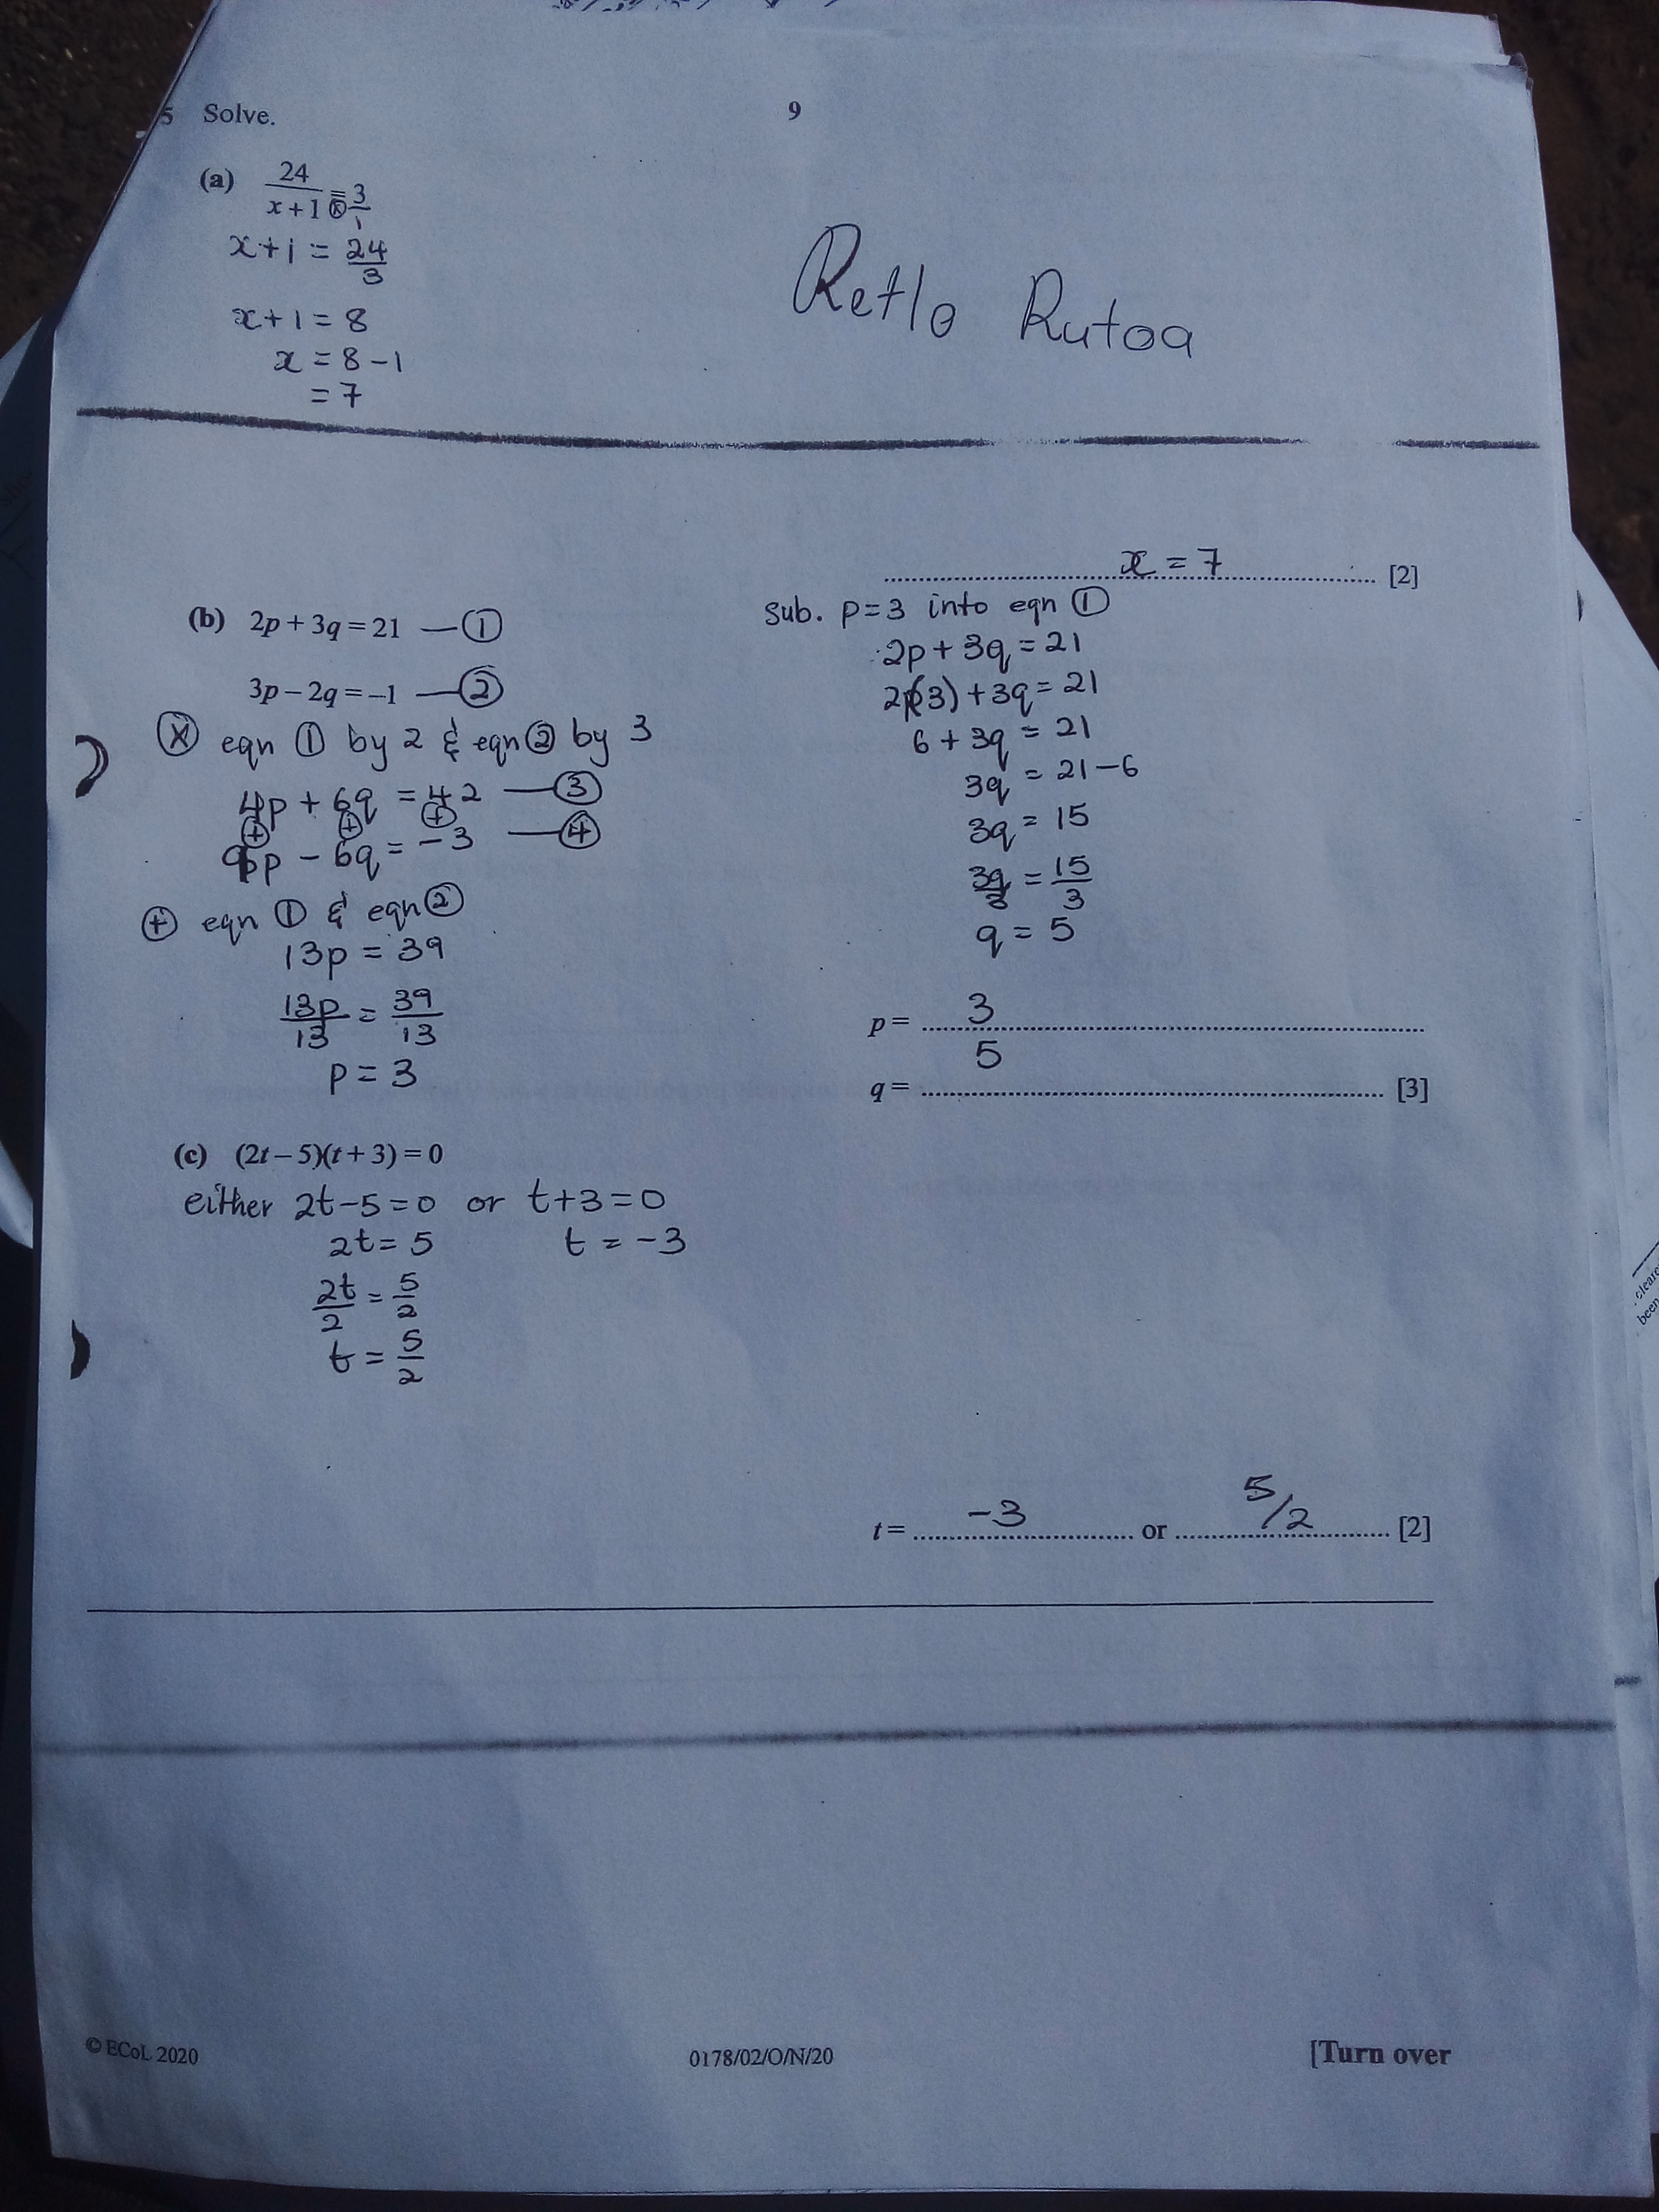 5 Solve.
9
(a) 24/(x+1) = 3/1
x+1 = 24/3
x+1 = 8
x = 8-1
= 7
Retlo Rutoa
x = 7 [2]
(b) 2p + 3q = 21 — ①
3p – 2q = –1 — ②
ⓧ eqn ① by 2 & eqn ② by 3
4p + 6q = 42 — ③
⊕ ⊕ ⊕
9p - 6q = -3 — ④
⊕ eqn ① & eqn ②
13p = 39
13p/13 = 39/13
p = 3
sub. p=3 into eqn ①
2p + 3q = 21
2(3) + 3q = 21
6 + 3q = 21
3q = 21-6
3q = 15
3q/3 = 15/3
q = 5
p = 3
q = 5 [3]
(c) (2t – 5)(t + 3) = 0
either 2t-5=0 or t+3=0
2t = 5 t = -3
2t/2 = 5/2
t = 5/2
t = -3 or 5/2 [2]
© ECoL 2020
0178/02/O/N/20
[Turn over